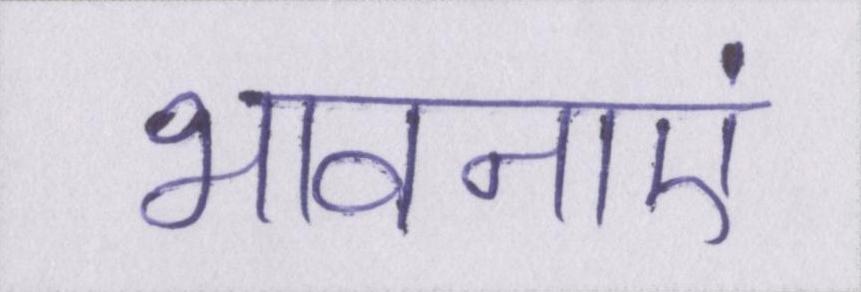 भावनाएं